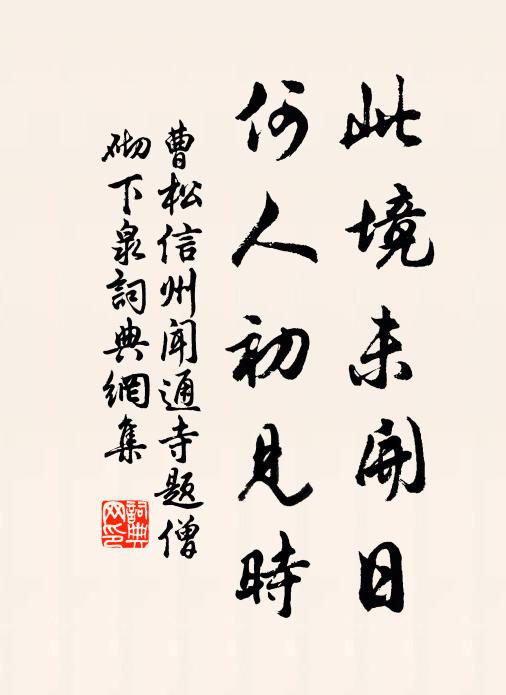 此境未開日
何人初見時
曹松信州聞通寺題僧
砌下泉詞典網集
詞典
网印